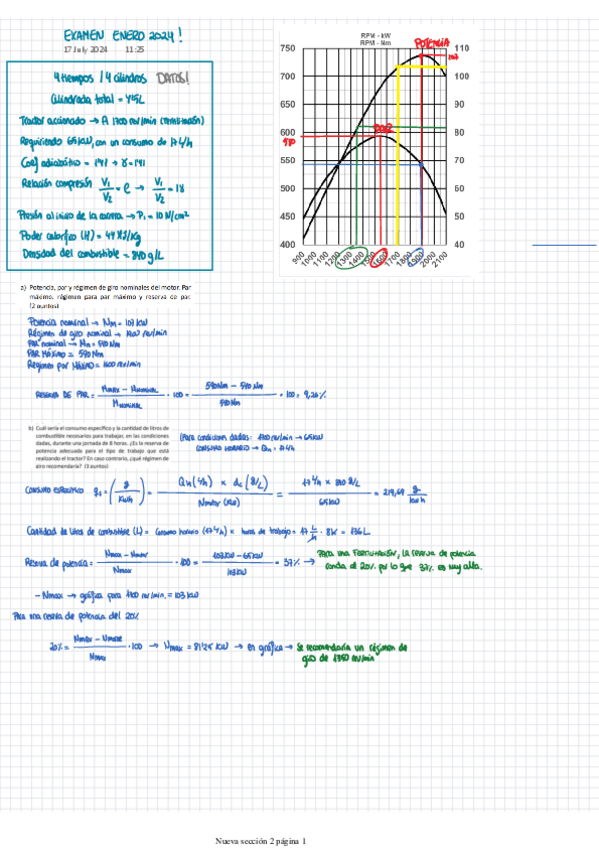 EXAMEN ENERO 2024!
17 July 2024 11:25
4 tiempos / 4 cilindros DATOS!
Cilindrada total = 4'15L
Tractor accionado → A 1700 rev/min (FERTILIZACIÓN)
Requiriendo 65 kW, con un consumo de 17 L/h
Coef adiabático = 1'41 → γ = 1'41
Relación compresión V₁/V₂ = e → V₁/V₂ = 18
Presión al inicio de la carrera → P₁ = 10 N/cm²
Poder calorífico (H) = 44 KJ/Kg
Densidad del combustible = 840 g/L
RPM - kW
RPM - Nm
POTENCIA
107
PAR
590
750
700
650
600
550
500
450
400
110
100
90
80
70
60
50
40
900 1000 1100 1200 1300 1400 1500 1600 1700 1800 1900 2000 2100
a) Potencia, par y régimen de giro nominales del motor. Par
máximo, régimen para par máximo y reserva de par.
(2 puntos)
Potencia nominal → Nm = 107 kW
Régimen de giro nominal → 1900 rev/min
PAR nominal → Mn = 540 Nm
PAR MÁXIMO = 590 Nm
Regimen par MÁXIMO = 1600 rev/min
RESERVA DE PAR = (Mmax - Mnominal / Mnominal) · 100 = (590Nm - 540 Nm / 540Nm) · 100 = 9,26%
b) Cuál sería el consumo específico y la cantidad de litros de
combustible necesarios para trabajar, en las condiciones
dadas, durante una jornada de 8 horas. ¿Es la reserva de
potencia adecuada para el tipo de trabajo que está
realizando el tractor? En caso contrario, ¿qué régimen de
giro recomendaría? (3 puntos)
(Para condiciones dadas: 1700 rev/min → 65kW
CONSUMO HORARIO → Qh = 17 L/h
CONSUMO ESPECÍFICO qs = (g / kWh) = Qh (L/h) × dc (g/L) / Nmotor (kW) = 17 L/h × 840 g/L / 65 kW = 219,69 g / kW h
Cantidad de litros de combustible (L) = Consumo horario (17 L/h) × horas de trabajo = 17 L/h · 8h = 136L
Reserva de potencia = (Nmax - Nmotor / Nmax) · 100 = (103kW - 65kW / 103kW) = 37% → PARA una FERTILIZACIÓN, la reserva de potencia
ronda el 20% por lo que 37% es muy alta.
- Nmax → gráfica para 1700 rev/min. = 103 kW
Para una reserva de potencia del 20%
20% = (Nmax - Nmotor / Nmax) · 100 → Nmax = 81'25 kW → en gráfica → Se recomendaría un régimen de
giro de 1350 rev/min
Nueva sección 2 página 1